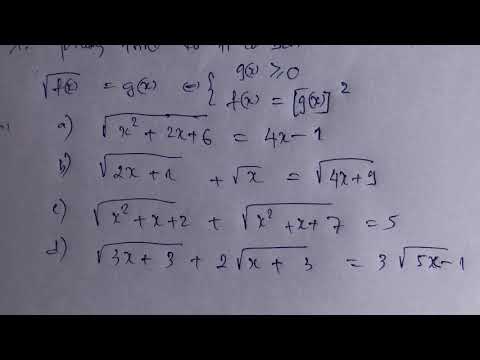 √f(x) = g(x) ⇔ { g(x) ≥ 0
f(x) = [g(x)]²
a) √x² + 2x + 6 = 4x - 1
b) √2x + 1 + √x = √4x + 9
c) √x² + x + 2 + √x² + x + 7 = 5
d) √3x + 3 + 2√x + 3 = 3√5x - 1